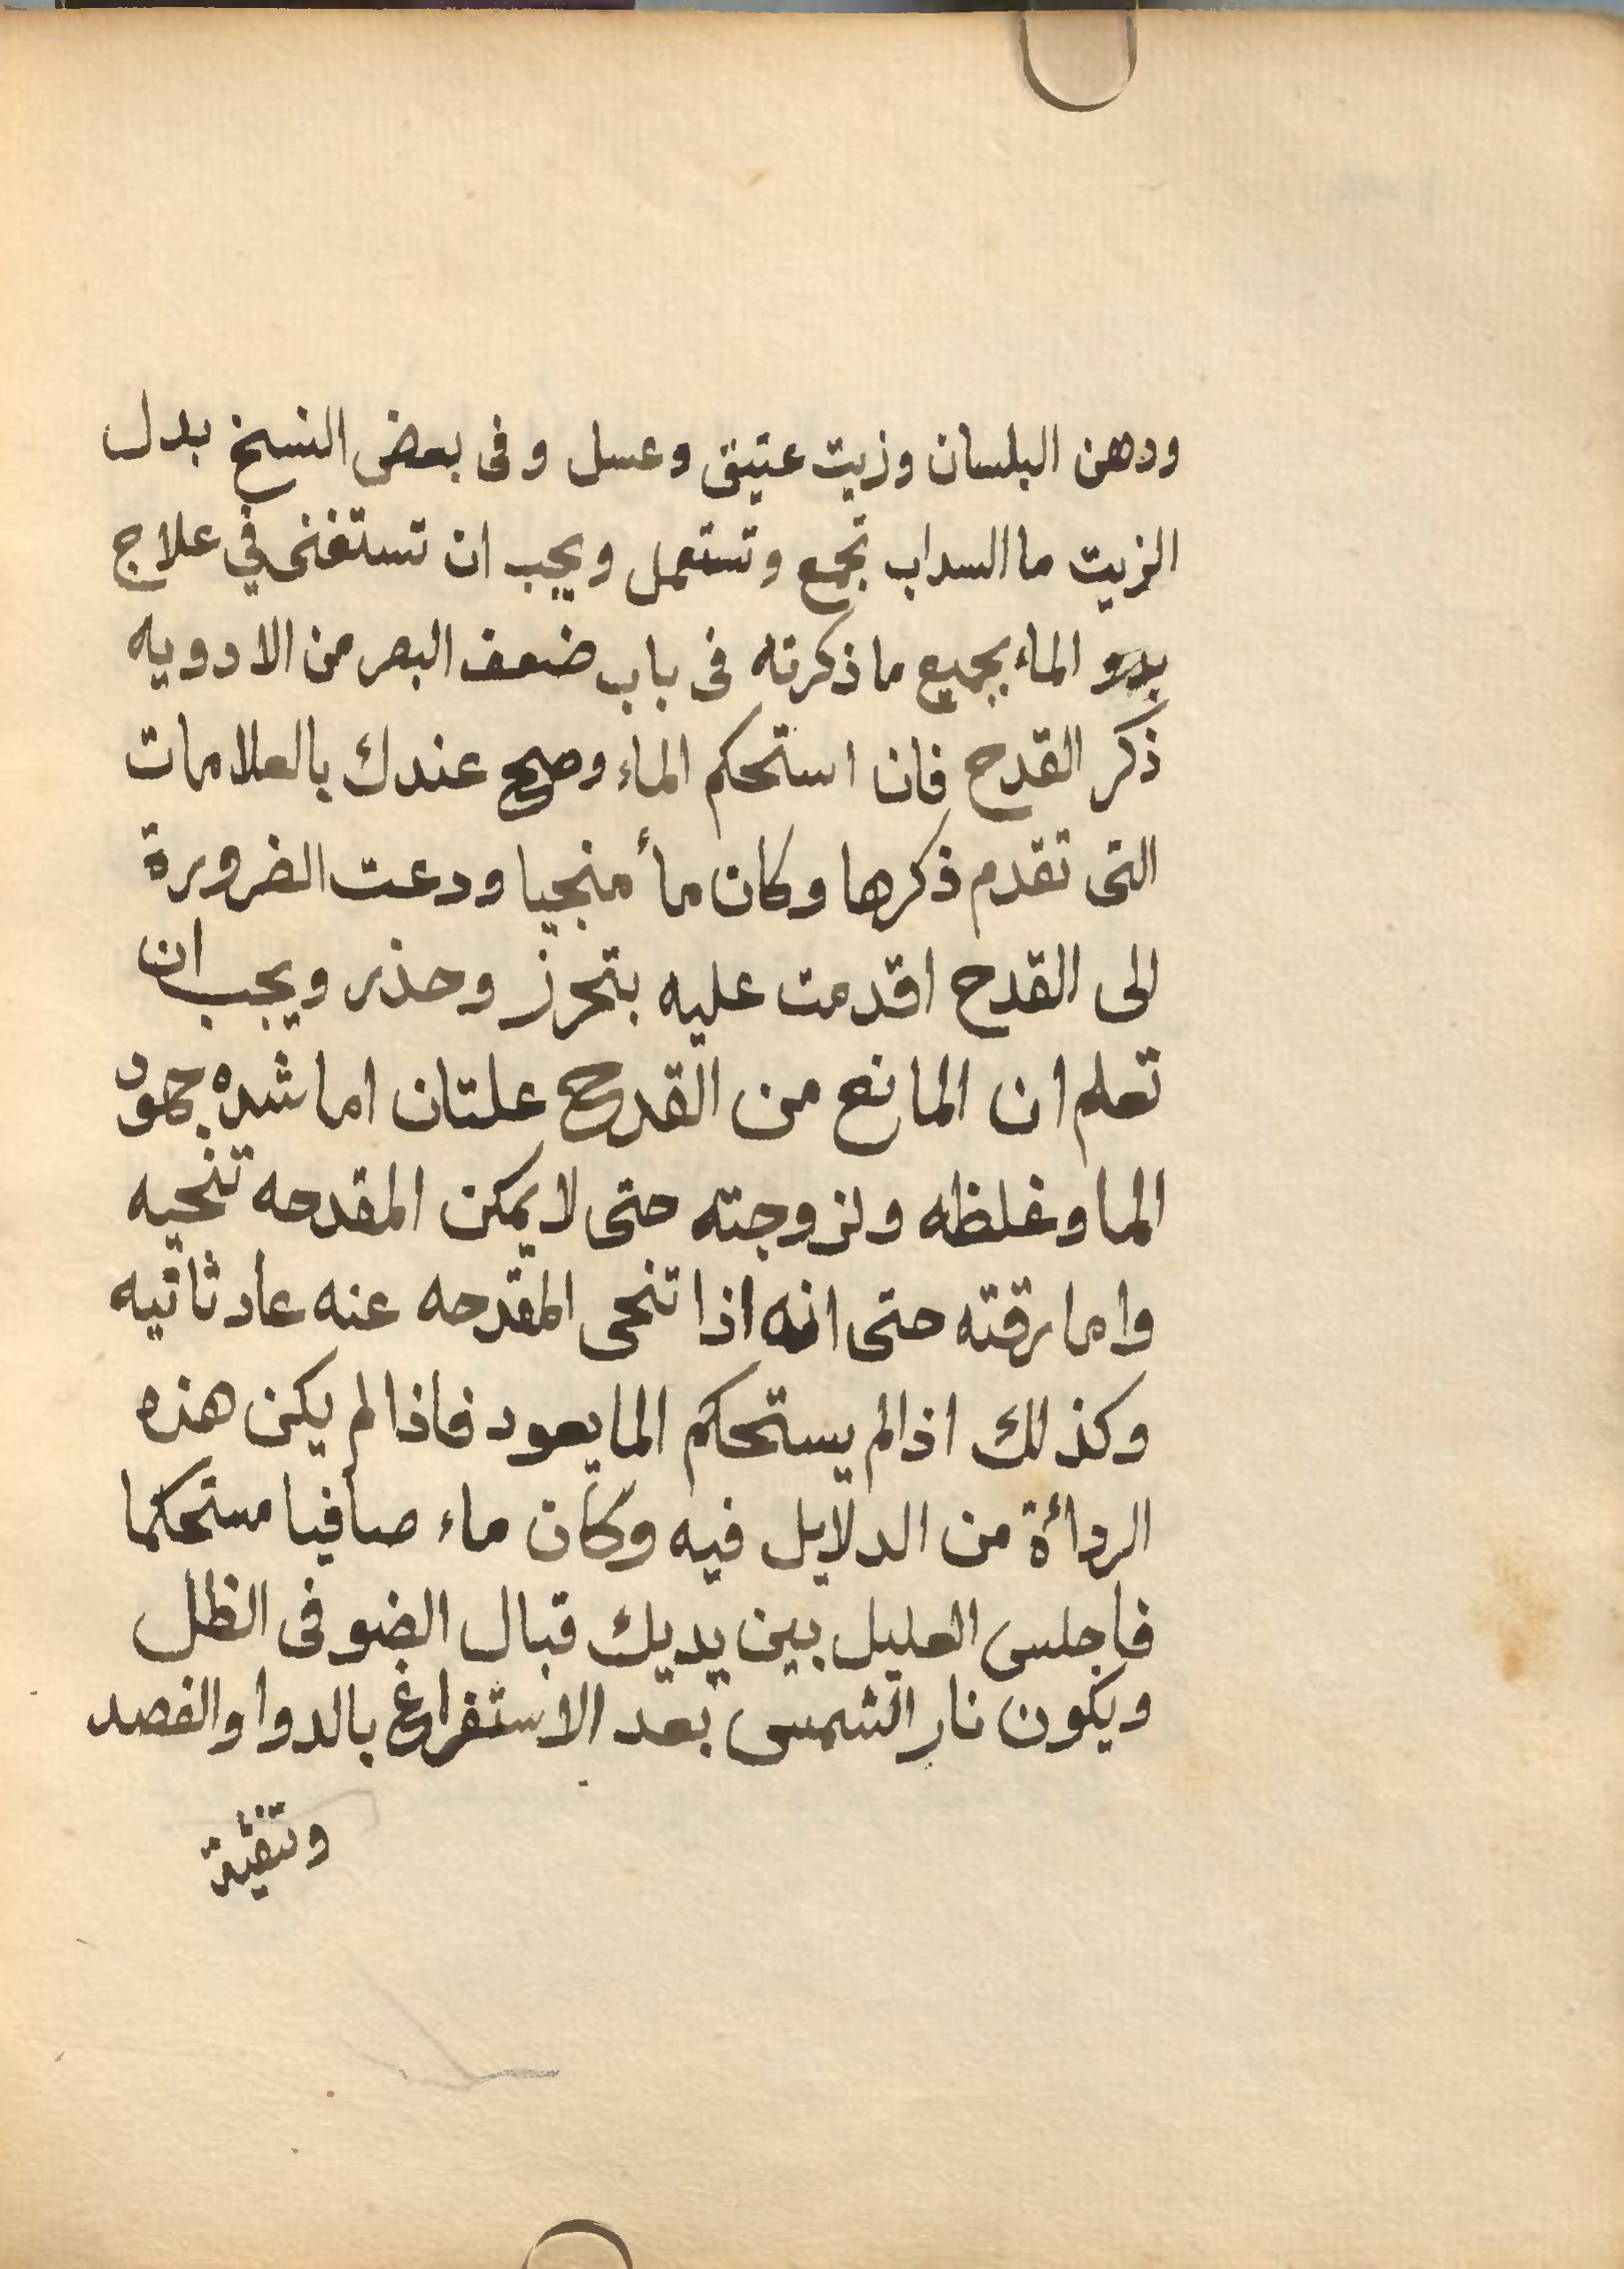 ودهن البلسان وزيت عتيق وعسل وفى بعض النسخ بدل
الزيت ما السداب تجمع وتستعمل ويجب ان تستغنى في علاج
بدو الماء بجميع ما ذكرته فى باب ضعف البصر من الادويه
ذكر القدح فان استحكم الماء وصح عندك بالعلامات
التى تقدم ذكرها وكان مأ منجيا ودعت الضرورة
الى القدح اقدمت عليه بتحرز وحذر ويجب ان
تعلم ان المانع من القدح علتان اما شده جمود
الما وغلظه ولزوجته حتى لا يمكن المقدحه تنحيه
واما رقته حتى انه اذا تنحى المقدحه عنه عاد ثانيه
وكذلك اذا لم يستحكم الما يعود فاذا لم يكن هذه
الردأة من الدلايل فيه وكان ماء صافيا مستحكما
فاجلس العليل بين يديك قبال الضو فى الظل
ويكون نار الشمس بعد الاستفراغ بالدوا والفصد
وتنقية